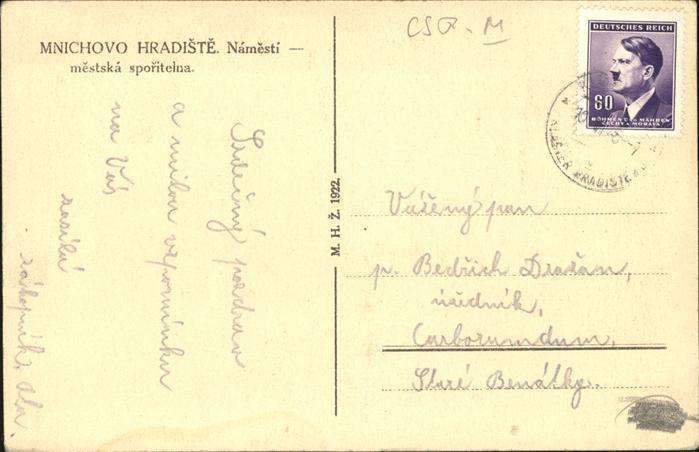 MNICHOVO HRADIŠTĚ. Náměstí —
městská spořitelna.
ČSR - M
DEUTSCHES REICH
60
BÖHMEN U. MÄHREN
ČECHY A MORAVA
KLÁŠTER HRADIŠTĚ
Srdečný pozdrav
a milou vzpomínku
na Vás
zasílá
M. H. Ž. 1922.
Vážený pan
p. Bedřich Dražan,
úředník,
Carborundum,
Staré Benátky.